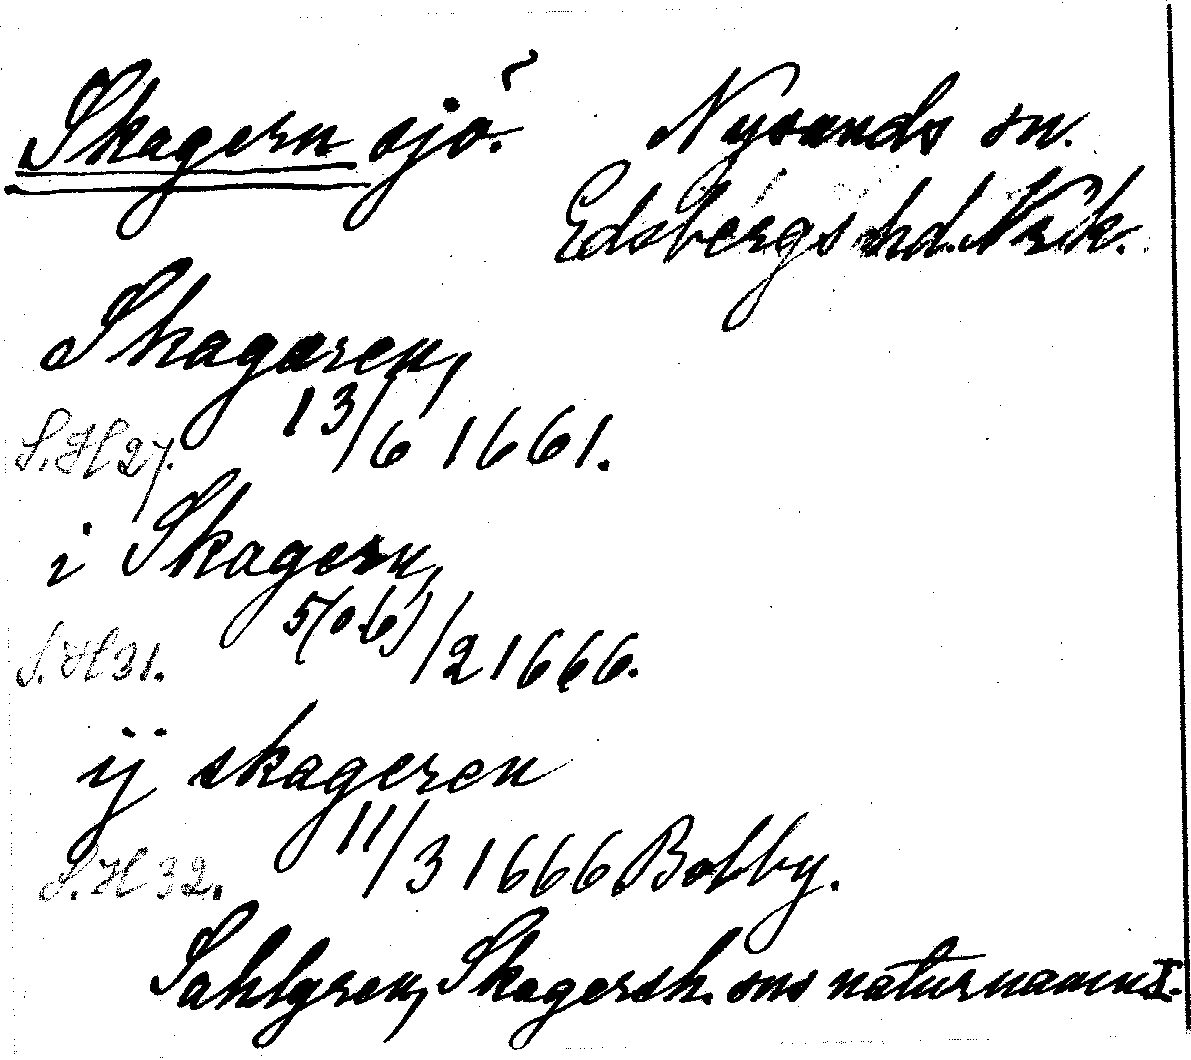 Skagern sjö. Nysunds sn.
Edsbergs hd. Nrk.
Skagaren,
13/6 1661.
S.H 27.
i Skagern,
5(o.6)/2 1666.
S.H 31.
ij skageren
11/3 1666 Bolby.
S.H 32.
Sahlgren, Skagersh. sns naturnamn I.